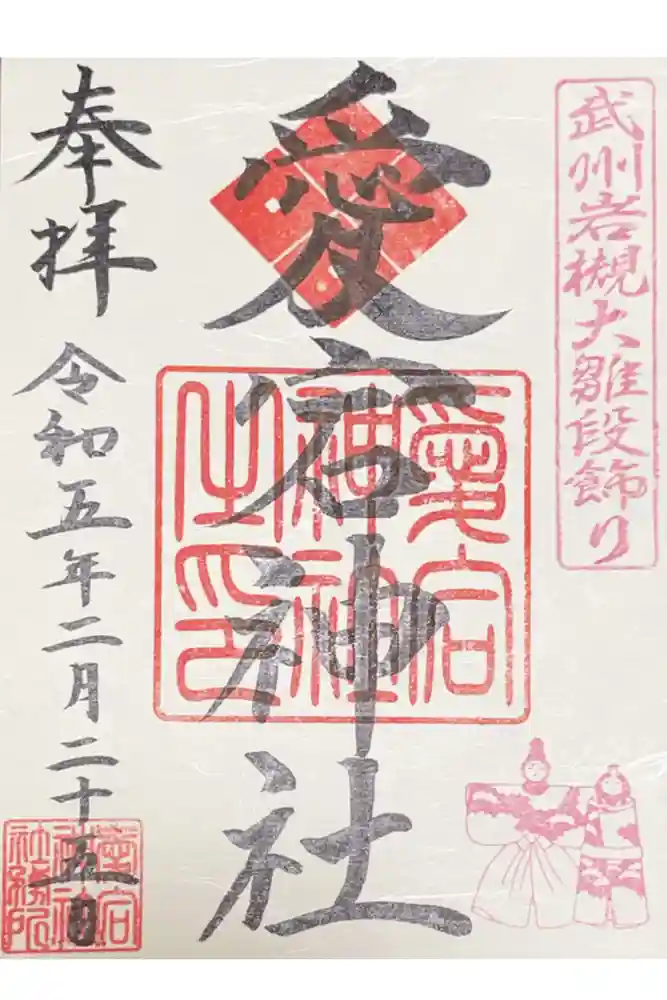 武州岩槻大雛段飾り
愛宕神社
愛宕
神社
之印
奉拝
令和五年二月二十五日
愛宕
神社
社務所